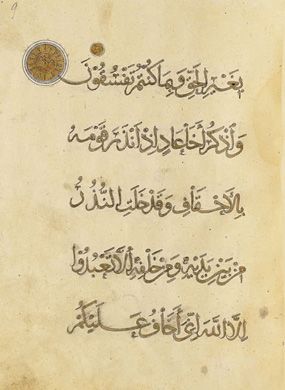 بِغَيْرِ الْحَقِّ وَبِمَا كُنْتُمْ تَفْسُقُونَ
وَاذْكُرْ أَخَا عَادٍ إِذْ أَنْذَرَ قَوْمَهُ
بِالْأَحْقَافِ وَقَدْ خَلَتِ النُّذُرُ
مِنْ بَيْنِ يَدَيْهِ وَمِنْ خَلْفِهِ أَلَّا تَعْبُدُوا
إِلَّا اللَّهَ إِنِّي أَخَافُ عَلَيْكُمْ